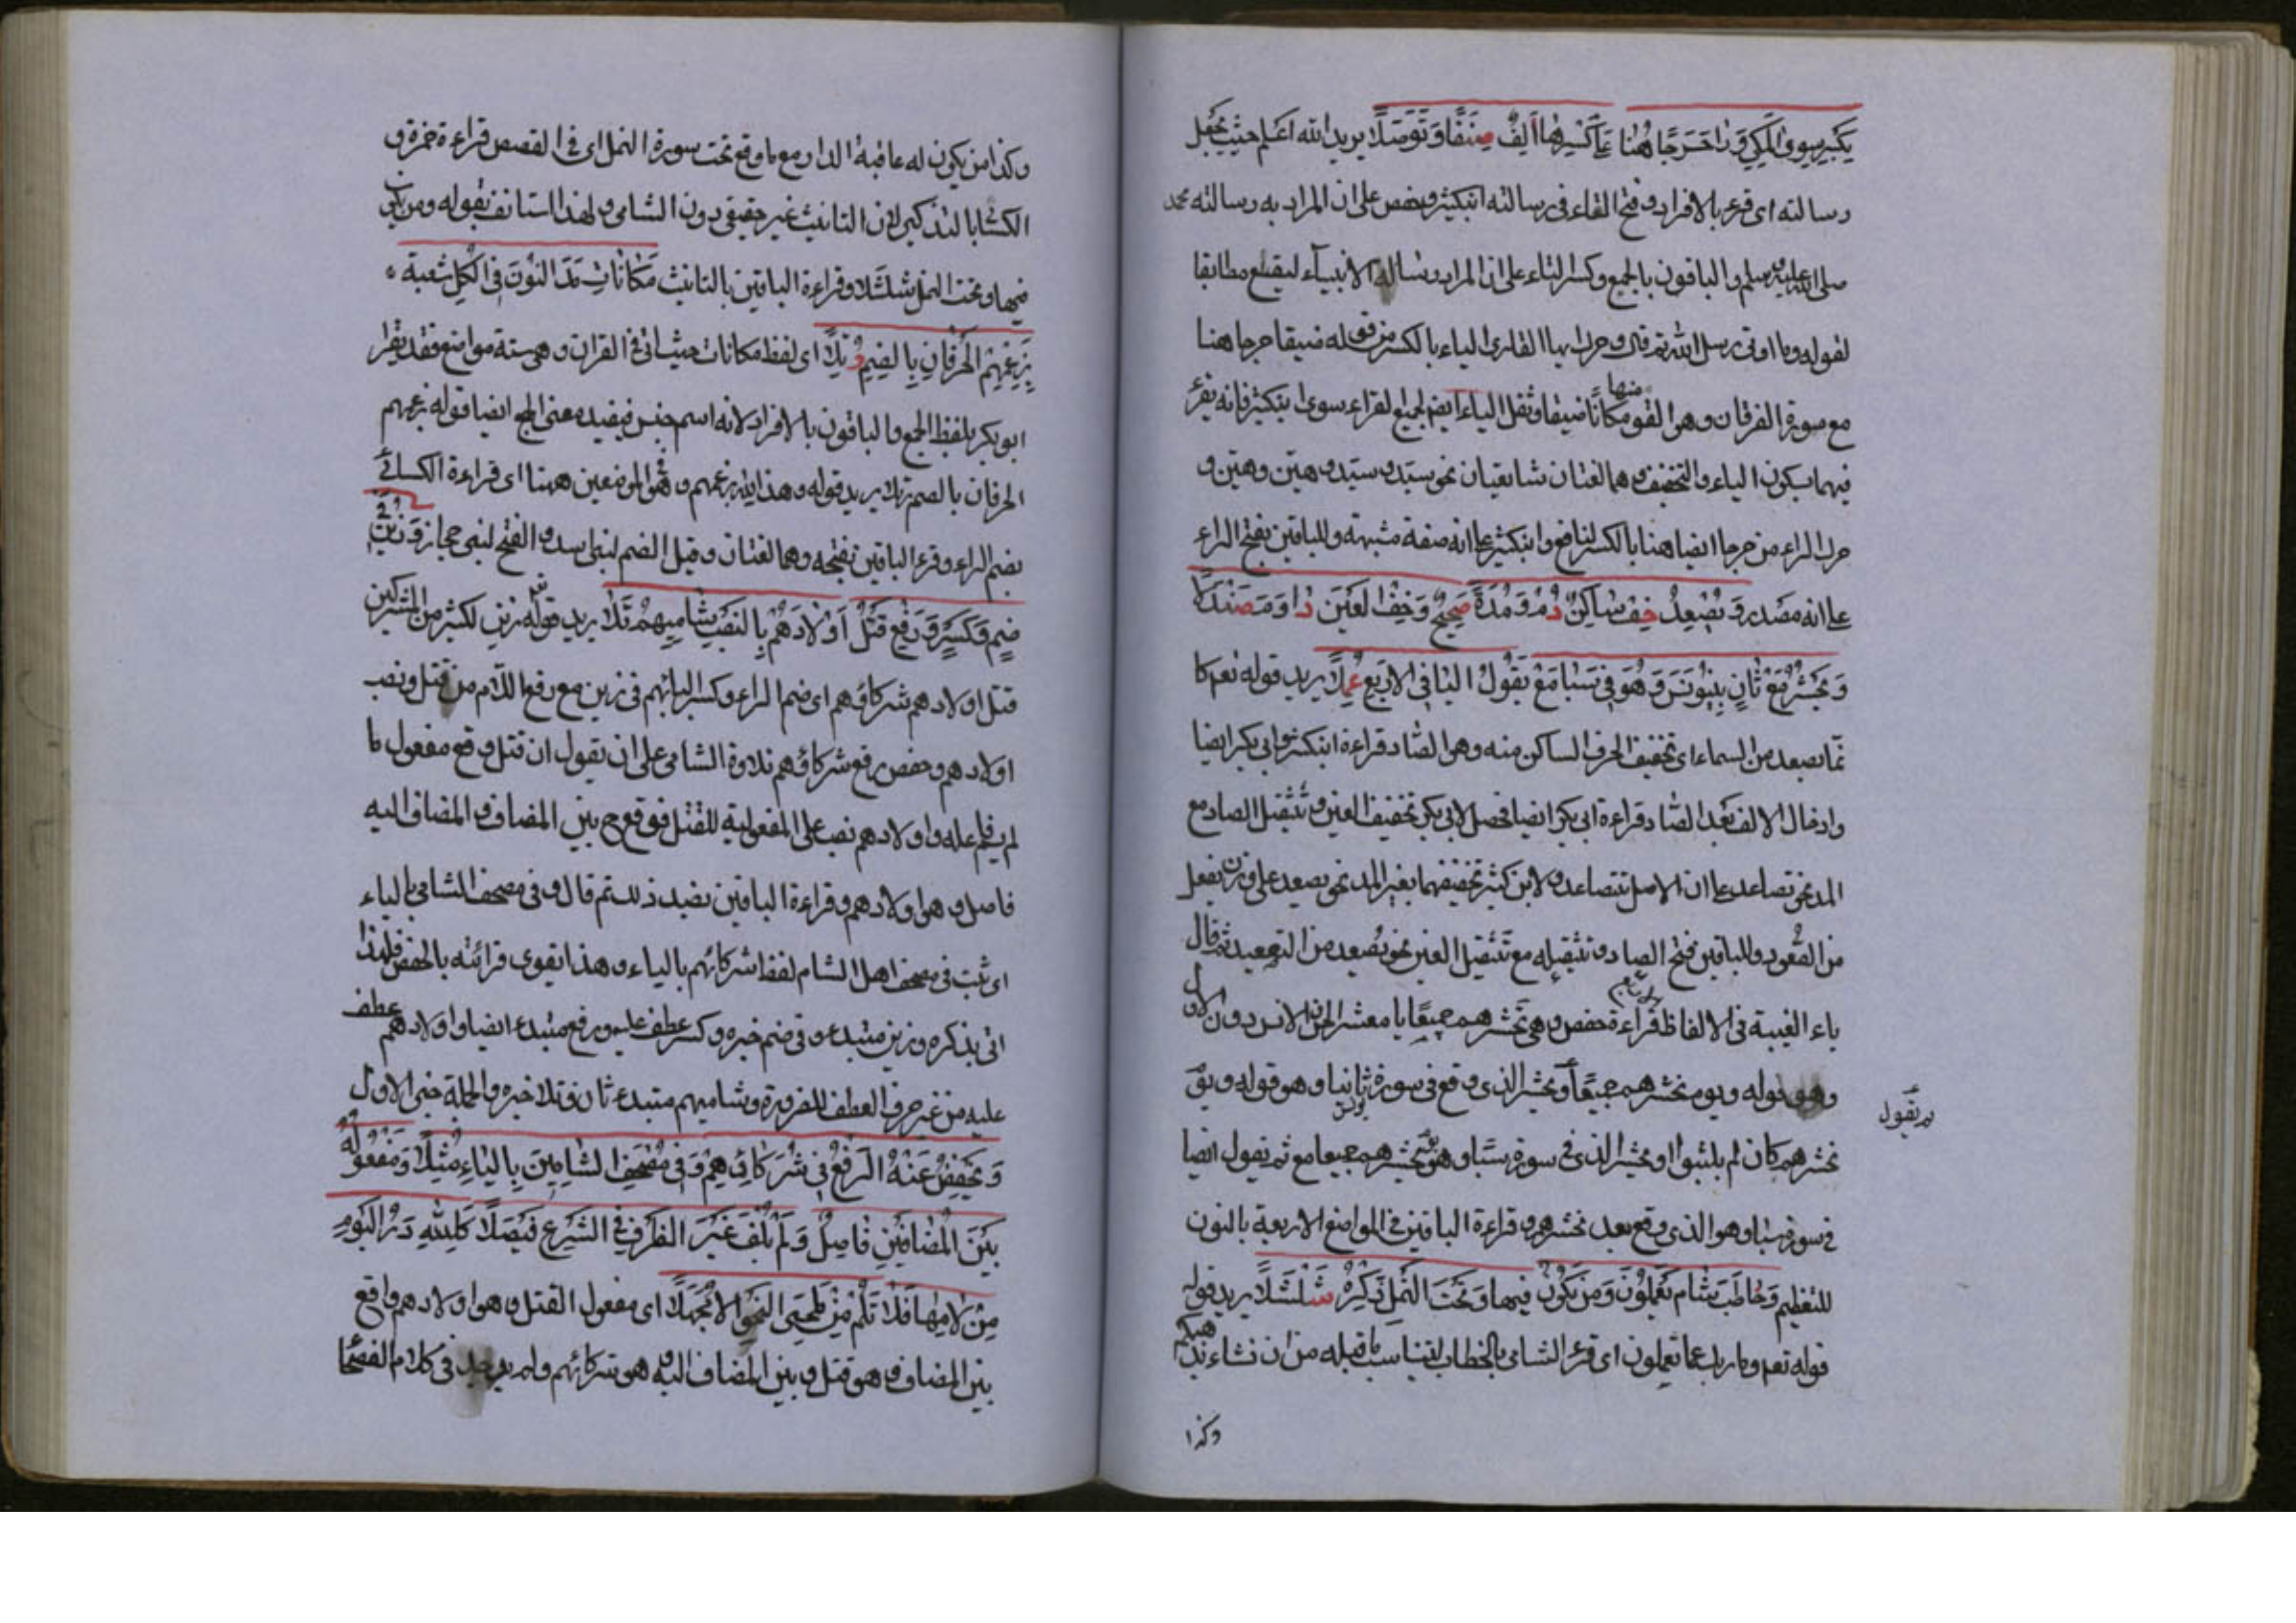 بكسر سوى المكي وَرَا حَرَجًا هُنَا عَلَى كَسْرِهَا أَلِفٌ صَفَا وَتَوَصَّلَا يريد الله اعلم حيث يجعل
رسالته اى قرء بالافراد وفتح التاء فى رسالته ابنكثير وحفص على ان المراد به رسالته محمد
صلى الله عليه وسلم والباقون بالجمع وكسر التاء على ان المراد رسالة الانبياء ليقع مطابقا
لقوله وما اوتى رسل الله ثم قال وحرك بها القارى الياء بالكسر من قوله ضيقا حرجا هنا
مع سورة الفرقان وهو القو منها مكانًا ضيقا وثقل الياء ايضا لجميع القراء سوى ابنكثير فانه يقرء
فيهما بسكون الياء والتخفيف وهما لغتان شايعتان نحو سيّد وسيد وهيّن وهين و
حرك الراء من حرجا ايضا هنا بالكسر لنافع وابنكثير على انه صفة مشبهة وللباقين بفتح الراء
على انه مصدر وَيَصْعَدُ خِفٌّ سَاكِنٌ دُمْ وَمَدُّهُ صَحِيحٌ وَخِفُّ الْعَيْنِ دَاوَمَ صَنْدَلَا
وَنَحْشُرُ مَعْ ثَانٍ بِيُونُسَ وَهُوَ فِي سَبَا مَعْ نَقُولُ الْيَا فِي الْأَرْبَعِ عُمِّلَا يريد قوله تعم كا
نما يصعد من السماء اى تخفيف الحرف الساكن منه وهو الصاد قراءة ابنكثير وابى بكر ايضا
وادخال الالف بعد الصاد قراءة ابى بكر ايضا فحصل لابى بكر تخفيف العين وتثقيل الصاد مع
المد نحو تصاعد على ان الاصل تتصاعد ولابن كثير تخفيفهما بغير المد نحو يصعد على وزن يفعل
من الصعود وللباقين فتح الصاد وتثقيله مع تثقيل العين نحو يصعد من التصعيد ثم قال
ياء الغيبة فى الالفاظ قراءة حفص وهى نحشرهم جميعًا يا معشر الجن والانس دون الاول
وهو قوله ويوم نحشرهم جميعًا ونحشر الذى وقع فى سورة ثانيا وهو قوله ويوم
نحشرهم كان لم يلبثوا ونحشر الذى فى سورة سبا وهو نحشرهم جميعا مع ثم يقول ايضا
فى سورة سبا وهو الذى وقع بعد نحشرهم وقراءة الباقين فى المواضع الاربعة بالنون
للتعظيم وَخَاطَبَ شَامٍ تَعْمَلُونَ وَمَنْ يَكُونُ فِيهَا وَتَحْتَ النَّمْلِ ذَكِّرْهُ شُلْشُلَا يريد قوله
قوله تعم وما ربك عما تعملون اى قرء الشامى بالخطاب ليناسب ما قبله من ان نشاء يذهبكم
وكذا
ثم نقول
وكذا من يكون له عاقبة الدار مع ما وقع تحت سورة النمل اى فى القصص قراءة حمزة و
الكسائى بالتذكير لان التانيث غير حقيقى دون الشامى ولهذا استانف بقوله ومن يكون
فيها وتحت النمل شلشلا وقراءة الباقين بالتانيث مَكَانَاتِ مَدَّ النُّونَ فِي الْكُلِّ شُعْبَةٌ
بِزَعْمِهِمُ الْحَرْفَانِ بِالضَّمِّ رُتِّلَا اى لفظ مكانات حيث اتى فى القران وهى ستة مواضع فقد يقرء
ابو بكر بلفظ الجمع والباقون بالافراد لانه اسم جنس فيفيد معنى الجمع ايضا قوله بزعمهم
الحرفان بالضم رتلا يريد قوله وهذا لله بزعمهم وهو الموضعين ههنا اى قراءة الكسائى
بضم الراء وقرء الباقين بفتحه وهما لغتان وقيل الضم لبنى اسد والفتح لبنى حجاز وَزَيَّنَ فِي
ضَمٍّ وَكَسْرٍ وَرَفْعُ قَتْلُ أَوْلَادَهُمْ بِالنَّصْبِ شَامِيهِمْ تَلَا يريد قوله زين لكثير من المشركين
قتل اولادهم شركاؤهم اى ضم الزاء وكسر اليائهم فى زين مع رفع اللام من قتل ونصب
اولادهم وخفض رفع شركاؤهم تلاوة الشامى على ان يقول ان قتل وقع مفعول ما
لم يسم فاعله واولادهم نصب على المفعولية للقتل فوقع ح بين المضاف والمضاف اليه
فاصل وهو اولادهم وقراءة الباقين بضد ذلك ثم قال وفى مصحف الشامى بالياء
اى ثبت فى مصحف اهل الشام لفظ شركائهم بالياء وهذا يقوى قرائته بالخفض فلهذا
اتى بذكره وزين مبتدء وفى ضم خبره وكسر عطف عليه ورفع مبتدء ايضا واولادهم عطف
عليه من غير حرف العطف للضرورة وشاميهم مبتدء ثان وتلا خبره والجملة خبر الاول
وَيُخْفَضُ عَنْهُ الرَّفْعُ فِي شُرَكَاؤُهُمْ وَفِي مُصْحَفِ الشَّامِينَ بِالْيَاءِ مُثِّلَا وَمَفْعُولُهُ
بَيْنَ الْمُضَافَيْنِ فَاصِلٌ وَلَمْ يُلْفَ غَيْرُ الظَّرْفِ فِي الشِّعْرِ فَيْصَلَا كَلِلَّهِ دَرُّ الْيَوْمَ
مَنْ لَامَهَا فَلَا تَلُمْ مِنْ مُلِيمِي النَّحْوِ إِلَّا مُجَهِّلَا اى مفعول القتل وهو اولادهم واقع
بين المضاف وهو قتل وبين المضاف اليه هو شركائهم ولم يوجد فى كلام الفصحا